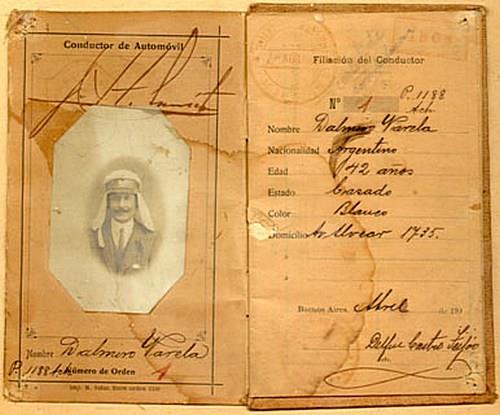 Conductor de Automóvil
Nombre Dalmiro Varela
P. 1188 Ach Número de Orden 1
Filiación del Conductor
Nº 1 P. 1188
Ach
Nombre Dalmiro Varela
Nacionalidad Argentino
Edad 42 años
Estado Casado
Color Blanco
Domicilio Av Alvear 1735.
Buenos Aires, Abril de 190